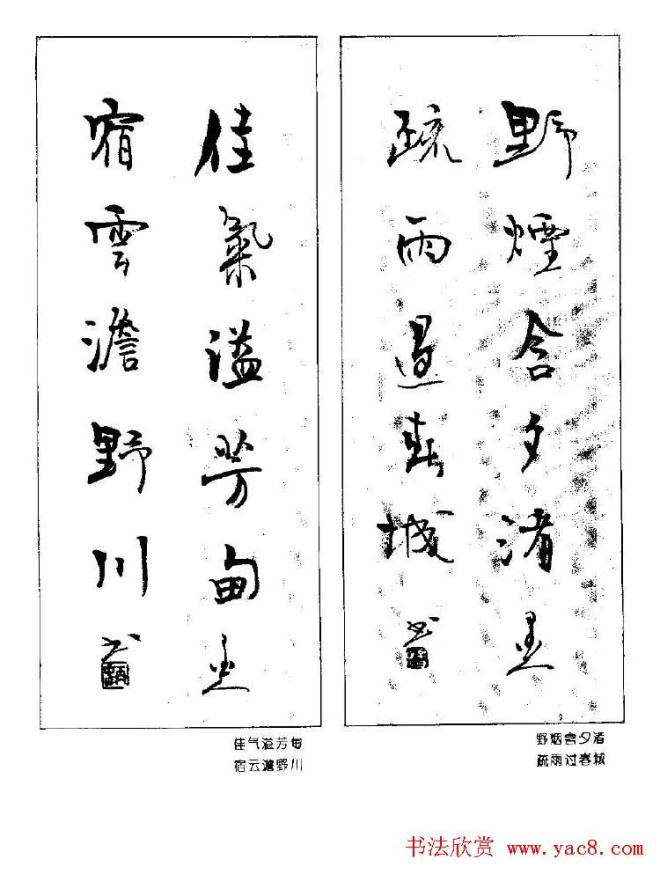 野煙含夕渚
疏雨過春城
佳氣溢芳甸
宿雲澹野川
野烟含夕渚
疏雨过春城
佳气溢芳甸
宿云澹野川
书法欣赏 www.yac8.com